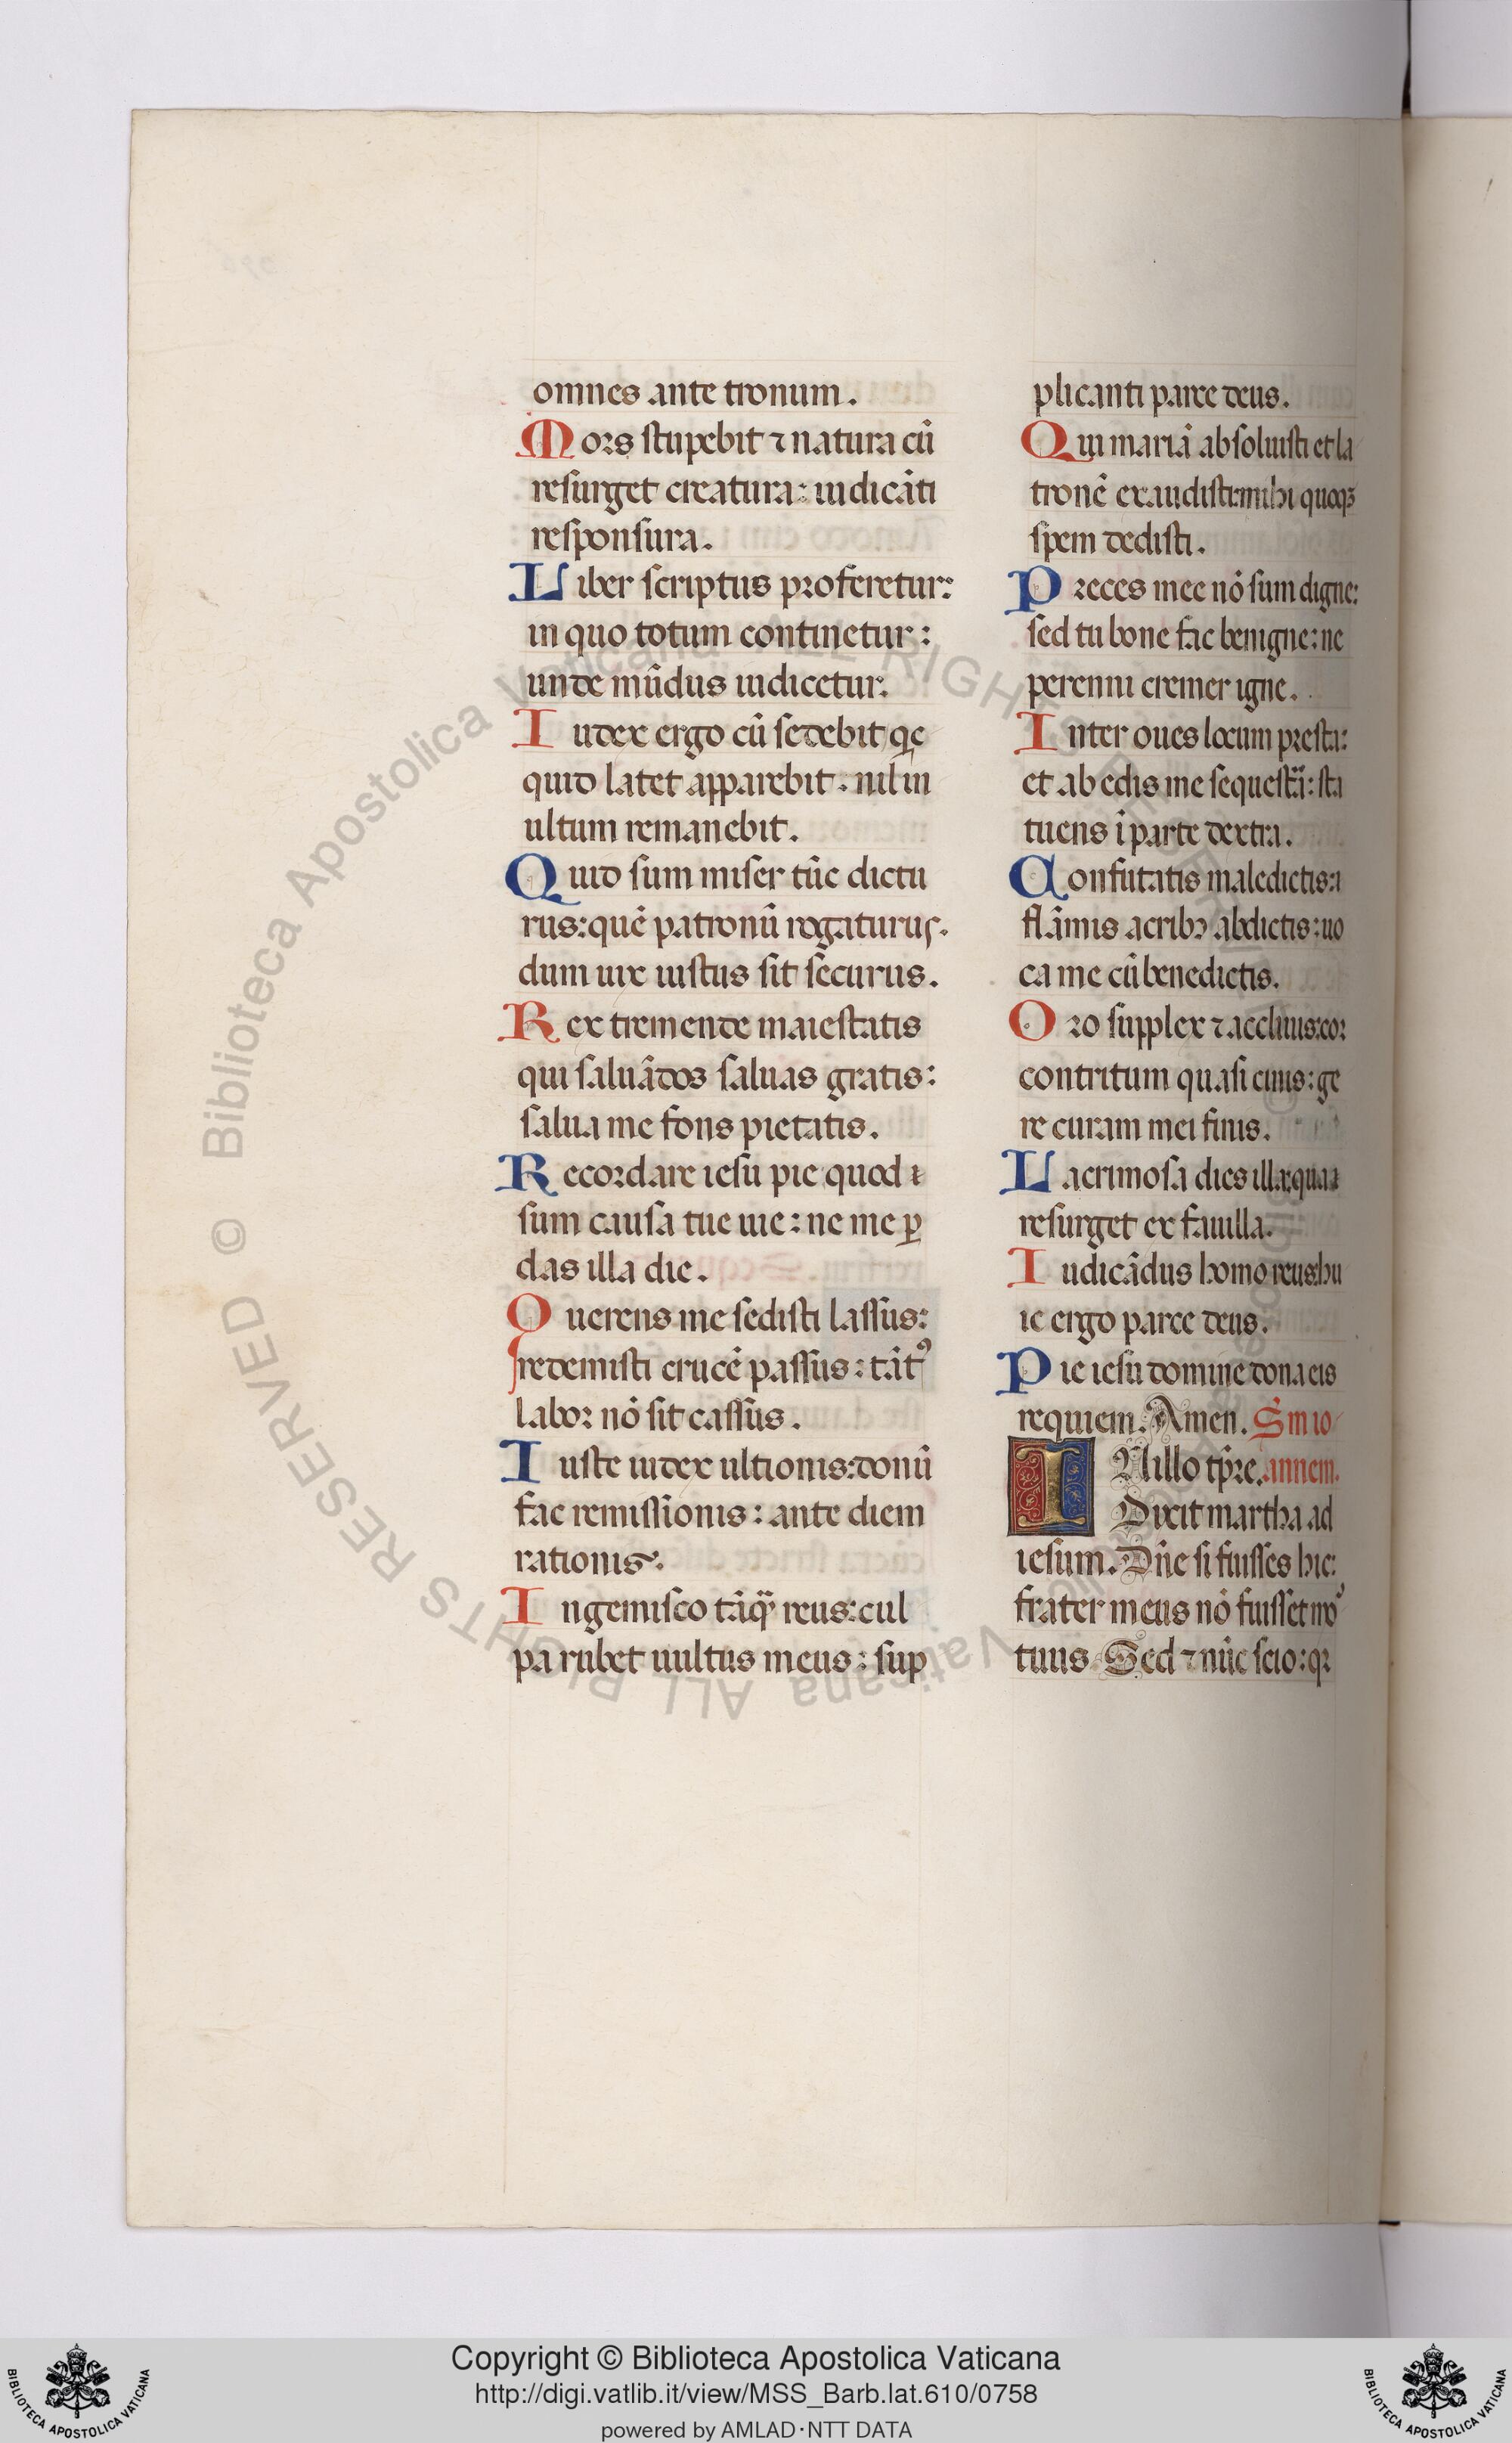 omnes ante tronum.
Mors stupebit ⁊ natura cū
resurget creatura: iudicāti
responsura.
Liber scriptus proferetur:
in quo totum continetur:
unde mūdus iudicetur.
Iudex ergo cū sedebit qc
quid latet apparebit. nil in
ultum remanebit.
Quid sum miser tūc dictu
rus: quē patronū rogaturus.
dum uix iustus sit securus.
Rex tremende maiestatis
qui saluādos saluas gratis:
salua me fons pietatis.
Recordare iesu pie quod
sum causa tue uie: ne me ꝑ
das illa die.
Querens me sedisti lassus:
redemisti crucē passus: tātꝰ
labor nō sit cassus.
Iuste iudex ultionis: donū
fac remissionis: ante diem
rationis.
Ingemisco tāq̄ reus: cul
pa rubet uultus meus: sup
plicanti parce deus.
Qui mariā absoluisti et la
tronē exaudisti: mihi quoqꝫ
spem dedisti.
Preces mee nō sum digne:
sed tu bone fac benigne: ne
perenni cremer igne.
Inter oues locum presta:
et ab edis me sequestrā: sta
tuens ī parte dextra.
Confutatis maledictis:
flāmis acribꝫ abdictis: uo
ca me cū benedictis.
Oro supplex ⁊ accliuis: cor
contritum quasi cinis: ge
re curam mei finis.
Lacrimosa dies illa: qua
resurget ex fauilla.
Iudicādus homo reus: hu
ic ergo parce deus.
Pie iesu domine dona eis
requiem. Amen. Sm io
IN illo tp̄re. annem.
Dixit martha ad
iesum. Dn̄e si fuisses hic:
frater meus nō fuisset mor
tuus. Sed ⁊ nūc scio: qꝛ
© Biblioteca Apostolica Vaticana ALL RIGHTS RESERVED
Copyright © Biblioteca Apostolica Vaticana
http://digi.vatlib.it/view/MSS_Barb.lat.610/0758
powered by AMLAD·NTT DATA
BIBLIOTECA APOSTOLICA VATICANA
BIBLIOTECA APOSTOLICA VATICANA